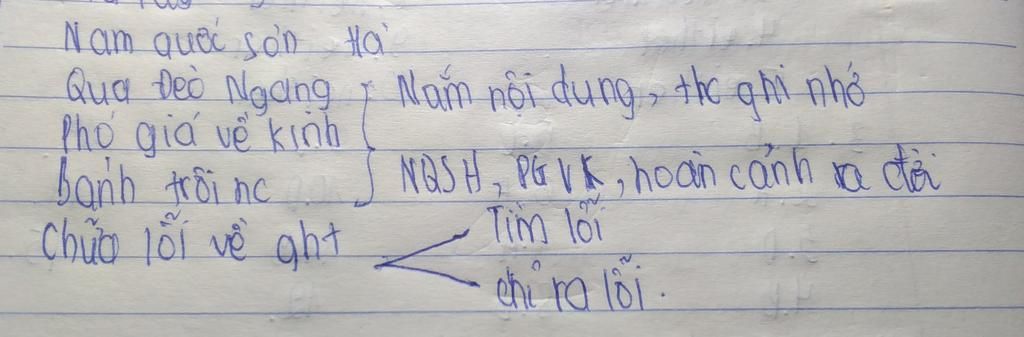 Nam quốc sơn Hà
Qua Đèo Ngang
Phó giá về kinh
bánh trôi nc
Nắm nội dung, thc ghi nhớ
NQSH, PGVK, hoàn cảnh ra đời
Chữa lỗi về qht
Tìm lỗi
chỉ ra lỗi.